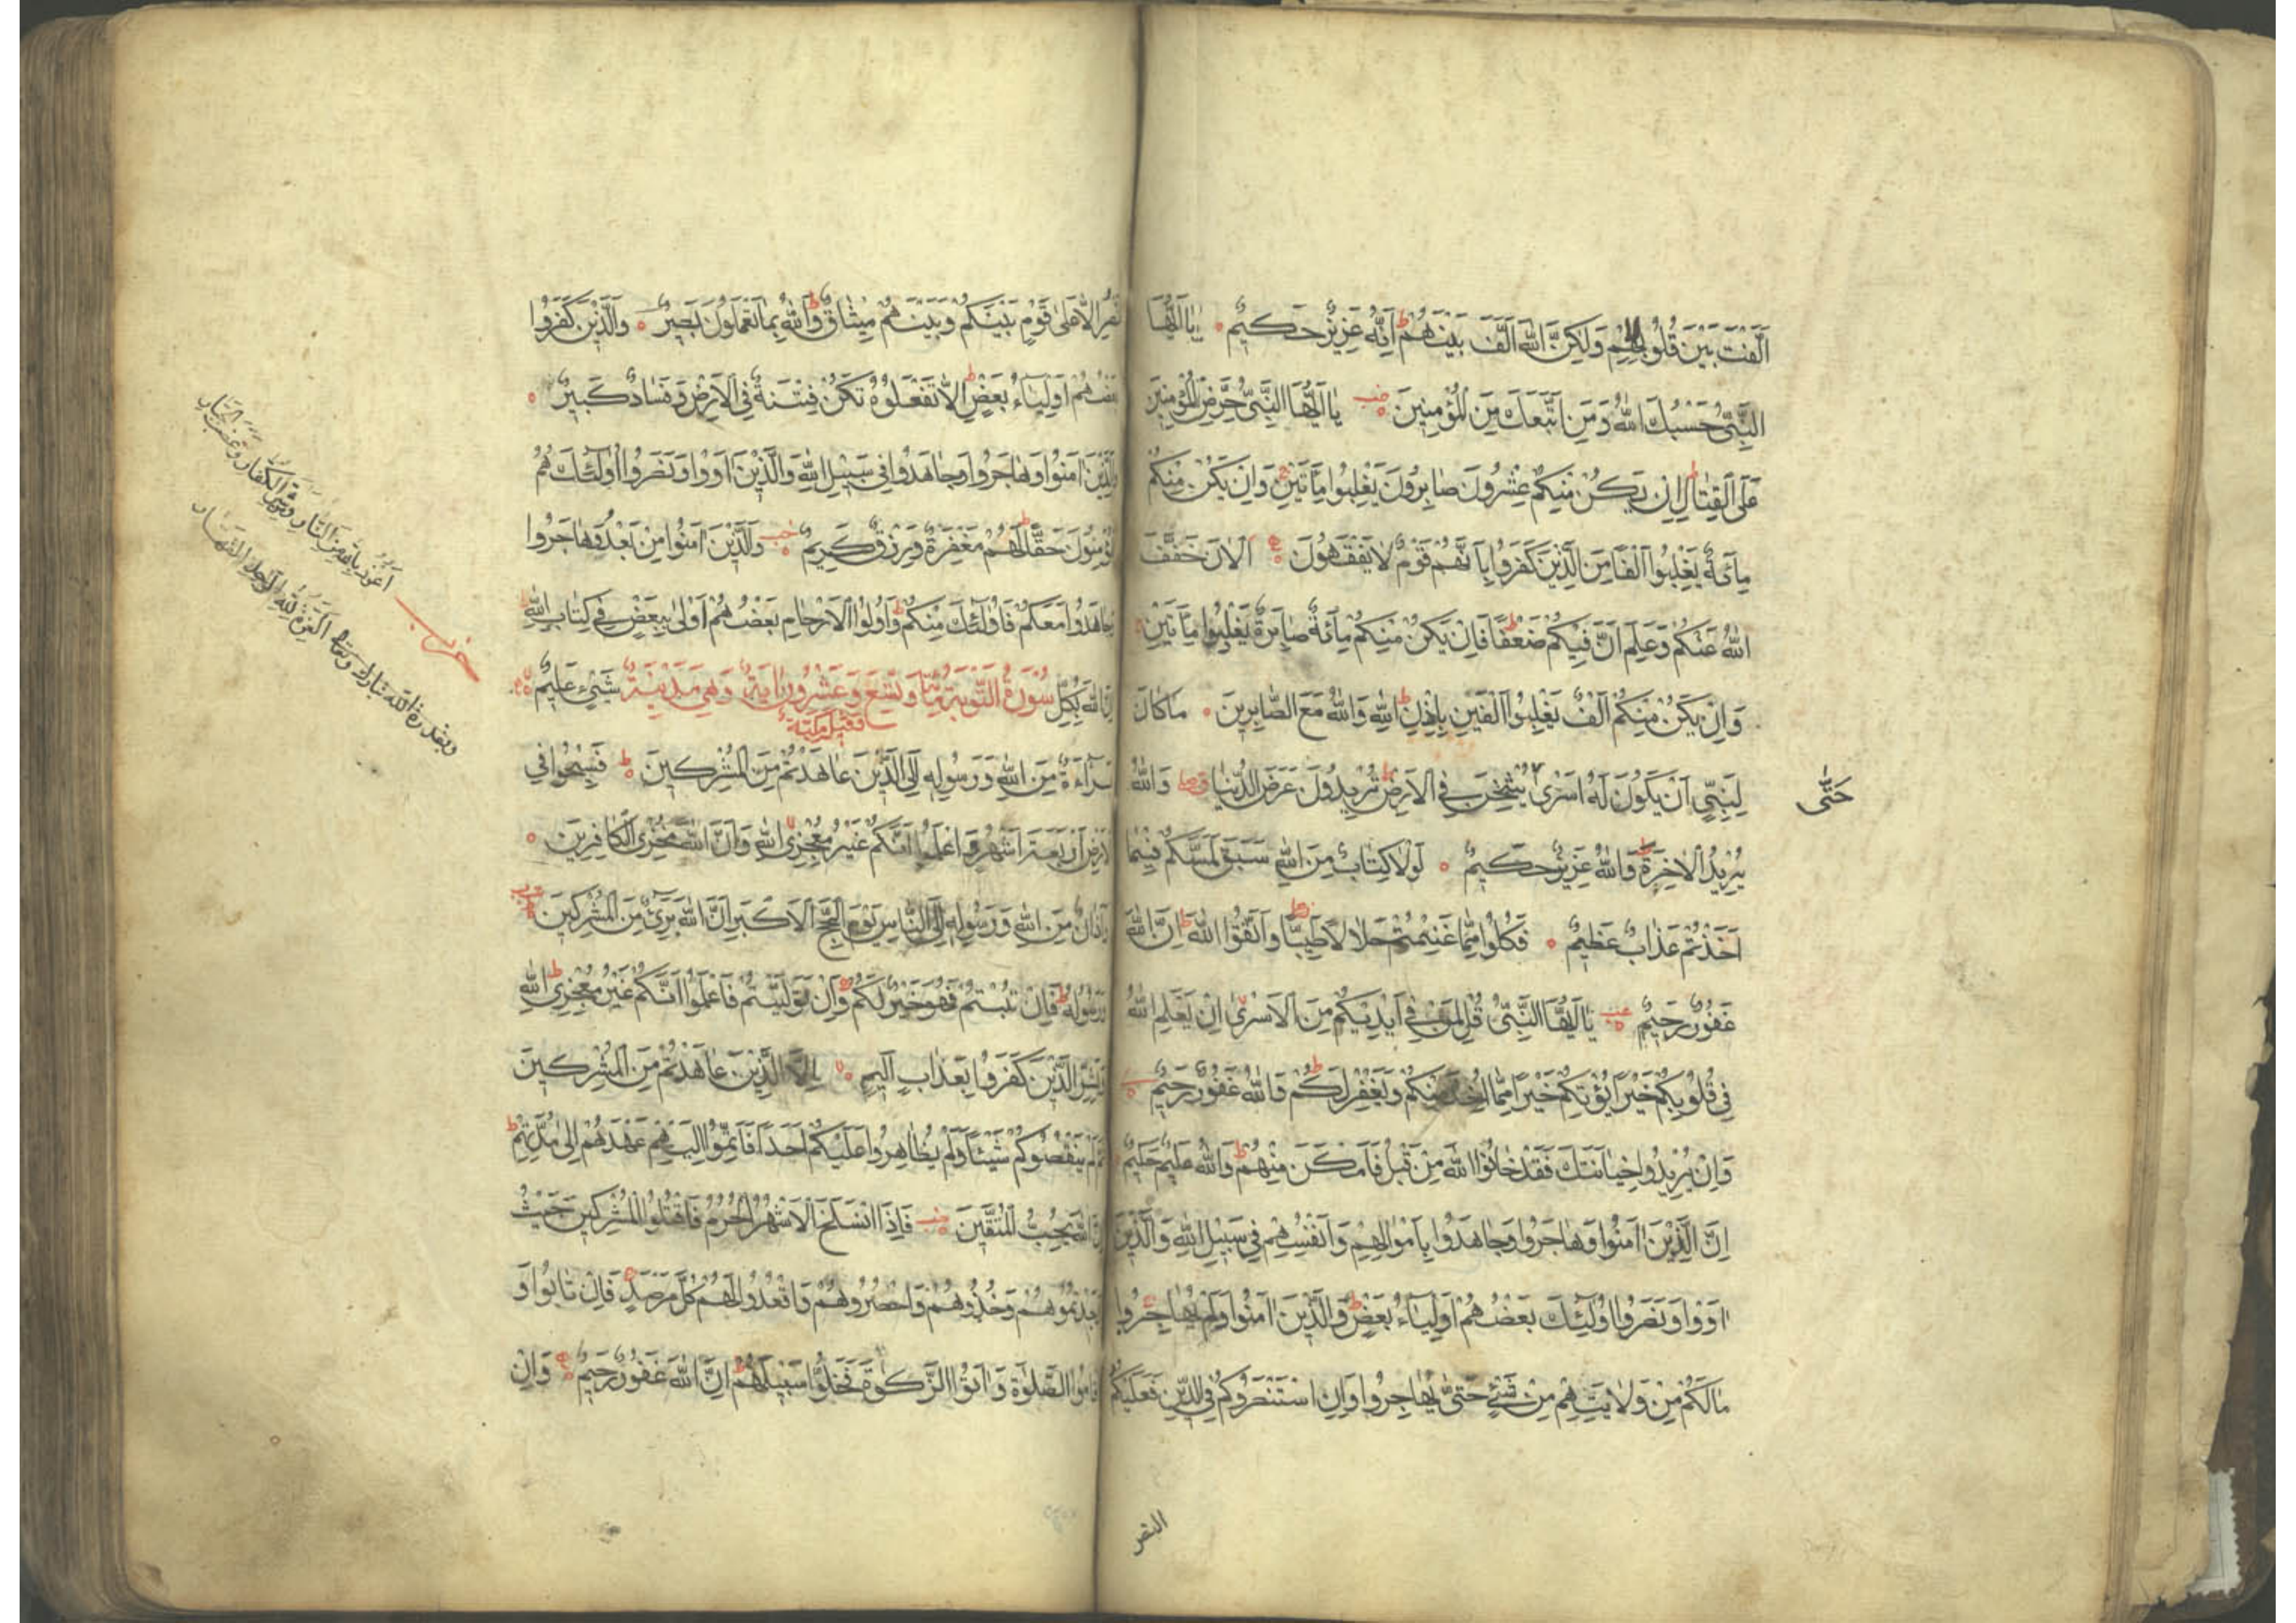 اَلَّفْتَ بَيْنَ قُلُوبِهِمْ وَلٰكِنَّ اللهَ اَلَّفَ بَيْنَهُمْ ط اِنَّهُ عَزِيزٌ حَكِيمٌ يَا اَيُّهَا
النَّبِيُّ حَسْبُكَ اللهُ وَمَنِ اتَّبَعَكَ مِنَ الْمُؤْمِنِينَ يَا اَيُّهَا النَّبِيُّ حَرِّضِ الْمُؤْمِنِينَ
عَلَى الْقِتَالِ ط اِنْ يَكُنْ مِنْكُمْ عِشْرُونَ صَابِرُونَ يَغْلِبُوا مِاَتَيْنِ وَاِنْ يَكُنْ مِنْكُمْ
مِائَةٌ يَغْلِبُوا اَلْفًا مِنَ الَّذِينَ كَفَرُوا بِاَنَّهُمْ قَوْمٌ لَا يَفْقَهُونَ اَلْاٰنَ خَفَّفَ
اللهُ عَنْكُمْ وَعَلِمَ اَنَّ فِيكُمْ ضَعْفًا ط فَاِنْ يَكُنْ مِنْكُمْ مِائَةٌ صَابِرَةٌ يَغْلِبُوا مِاَتَيْنِ
وَاِنْ يَكُنْ مِنْكُمْ اَلْفٌ يَغْلِبُوا اَلْفَيْنِ بِاِذْنِ اللهِ ط وَاللهُ مَعَ الصَّابِرِينَ مَا كَانَ
لِنَبِيٍّ اَنْ يَكُونَ لَهُ اَسْرٰى يُثْخِنَ فِي الْاَرْضِ ط تُرِيدُونَ عَرَضَ الدُّنْيَا وَاللهُ
حَتّٰى
يُرِيدُ الْاٰخِرَةَ ط وَاللهُ عَزِيزٌ حَكِيمٌ لَوْلَا كِتَابٌ مِنَ اللهِ سَبَقَ لَمَسَّكُمْ فِيمَا
اَخَذْتُمْ عَذَابٌ عَظِيمٌ فَكُلُوا مِمَّا غَنِمْتُمْ حَلَالًا طَيِّبًا وَاتَّقُوا اللهَ ط اِنَّ اللهَ
غَفُورٌ رَحِيمٌ يَا اَيُّهَا النَّبِيُّ قُلْ لِمَنْ فِي اَيْدِيكُمْ مِنَ الْاَسْرٰى اِنْ يَعْلَمِ اللهُ
فِي قُلُوبِكُمْ خَيْرًا يُؤْتِكُمْ خَيْرًا مِمَّا اُخِذَ مِنْكُمْ وَيَغْفِرْ لَكُمْ ط وَاللهُ غَفُورٌ رَحِيمٌ
وَاِنْ يُرِيدُوا خِيَانَتَكَ فَقَدْ خَانُوا اللهَ مِنْ قَبْلُ فَاَمْكَنَ مِنْهُمْ ط وَاللهُ عَلِيمٌ حَكِيمٌ
اِنَّ الَّذِينَ اٰمَنُوا وَهَاجَرُوا وَجَاهَدُوا بِاَمْوَالِهِمْ وَاَنْفُسِهِمْ فِي سَبِيلِ اللهِ وَالَّذِينَ
اٰوَوْا وَنَصَرُوا اُولٰئِكَ بَعْضُهُمْ اَوْلِيَاءُ بَعْضٍ ط وَالَّذِينَ اٰمَنُوا وَلَمْ يُهَاجِرُوا
مَا لَكُمْ مِنْ وَلَايَتِهِمْ مِنْ شَيْءٍ حَتّٰى يُهَاجِرُوا وَاِنِ اسْتَنْصَرُوكُمْ فِي الدِّينِ فَعَلَيْكُمُ
النصر
نَصْرُ اِلَّا عَلٰى قَوْمٍ بَيْنَكُمْ وَبَيْنَهُمْ مِيثَاقٌ ط وَاللهُ بِمَا تَعْمَلُونَ بَصِيرٌ وَالَّذِينَ كَفَرُوا
بَعْضُهُمْ اَوْلِيَاءُ بَعْضٍ ط اِلَّا تَفْعَلُوهُ تَكُنْ فِتْنَةٌ فِي الْاَرْضِ وَفَسَادٌ كَبِيرٌ
وَالَّذِينَ اٰمَنُوا وَهَاجَرُوا وَجَاهَدُوا فِي سَبِيلِ اللهِ وَالَّذِينَ اٰوَوْا وَنَصَرُوا اُولٰئِكَ هُمُ
الْمُؤْمِنُونَ حَقًّا ط لَهُمْ مَغْفِرَةٌ وَرِزْقٌ كَرِيمٌ وَالَّذِينَ اٰمَنُوا مِنْ بَعْدُ وَهَاجَرُوا
وَجَاهَدُوا مَعَكُمْ فَاُولٰئِكَ مِنْكُمْ ط وَاُولُوا الْاَرْحَامِ بَعْضُهُمْ اَوْلٰى بِبَعْضٍ فِي كِتَابِ اللهِ ط
اِنَّ اللهَ بِكُلِّ سُورَةُ التَّوْبَةِ مِائَة وَتِسْعٌ وَعِشْرُونَ اٰيَةً وَهِيَ مَدَنِيَّةٌ شَيْءٍ عَلِيمٌ
فقيل مكية
بَرَاءَةٌ مِنَ اللهِ وَرَسُولِهِ اِلَى الَّذِينَ عَاهَدْتُمْ مِنَ الْمُشْرِكِينَ ط فَسِيحُوا فِي
الْاَرْضِ اَرْبَعَةَ اَشْهُرٍ وَاعْلَمُوا اَنَّكُمْ غَيْرُ مُعْجِزِي اللهِ وَاَنَّ اللهَ مُخْزِي الْكَافِرِينَ
وَاَذَانٌ مِنَ اللهِ وَرَسُولِهِ اِلَى النَّاسِ يَوْمَ الْحَجِّ الْاَكْبَرِ اَنَّ اللهَ بَرِيءٌ مِنَ الْمُشْرِكِينَ
وَرَسُولُهُ ط فَاِنْ تُبْتُمْ فَهُوَ خَيْرٌ لَكُمْ وَاِنْ تَوَلَّيْتُمْ فَاعْلَمُوا اَنَّكُمْ غَيْرُ مُعْجِزِي اللهِ ط
وَبَشِّرِ الَّذِينَ كَفَرُوا بِعَذَابٍ اَلِيمٍ اِلَّا الَّذِينَ عَاهَدْتُمْ مِنَ الْمُشْرِكِينَ
ثُمَّ لَمْ يَنْقُصُوكُمْ شَيْئًا وَلَمْ يُظَاهِرُوا عَلَيْكُمْ اَحَدًا فَاَتِمُّوا اِلَيْهِمْ عَهْدَهُمْ اِلٰى مُدَّتِهِمْ ط
اِنَّ اللهَ يُحِبُّ الْمُتَّقِينَ فَاِذَا انْسَلَخَ الْاَشْهُرُ الْحُرُمُ فَاقْتُلُوا الْمُشْرِكِينَ حَيْثُ
وَجَدْتُمُوهُمْ وَخُذُوهُمْ وَاحْصُرُوهُمْ وَاقْعُدُوا لَهُمْ كُلَّ مَرْصَدٍ فَاِنْ تَابُوا وَ
اَقَامُوا الصَّلٰوةَ وَاٰتَوُا الزَّكٰوةَ فَخَلُّوا سَبِيلَهُمْ ط اِنَّ اللهَ غَفُورٌ رَحِيمٌ وَاِنْ
حزب
اَعُوذُ بِاللهِ مِنَ النَّارِ وَمِنْ شَرِّ الْكُفَّارِ وَغَضَبِ الْجَبَّارِ
الْعِزَّةُ لِلّٰهِ الْوَاحِدِ الْقَهَّارِ